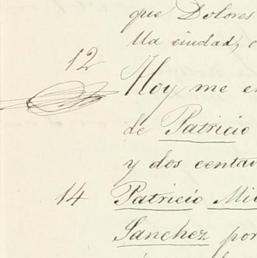 que Dolores
lla ciudad, c
12
Hoy me e
de Patricio
y dos centa
14 Patricio Mi
Sanchez por